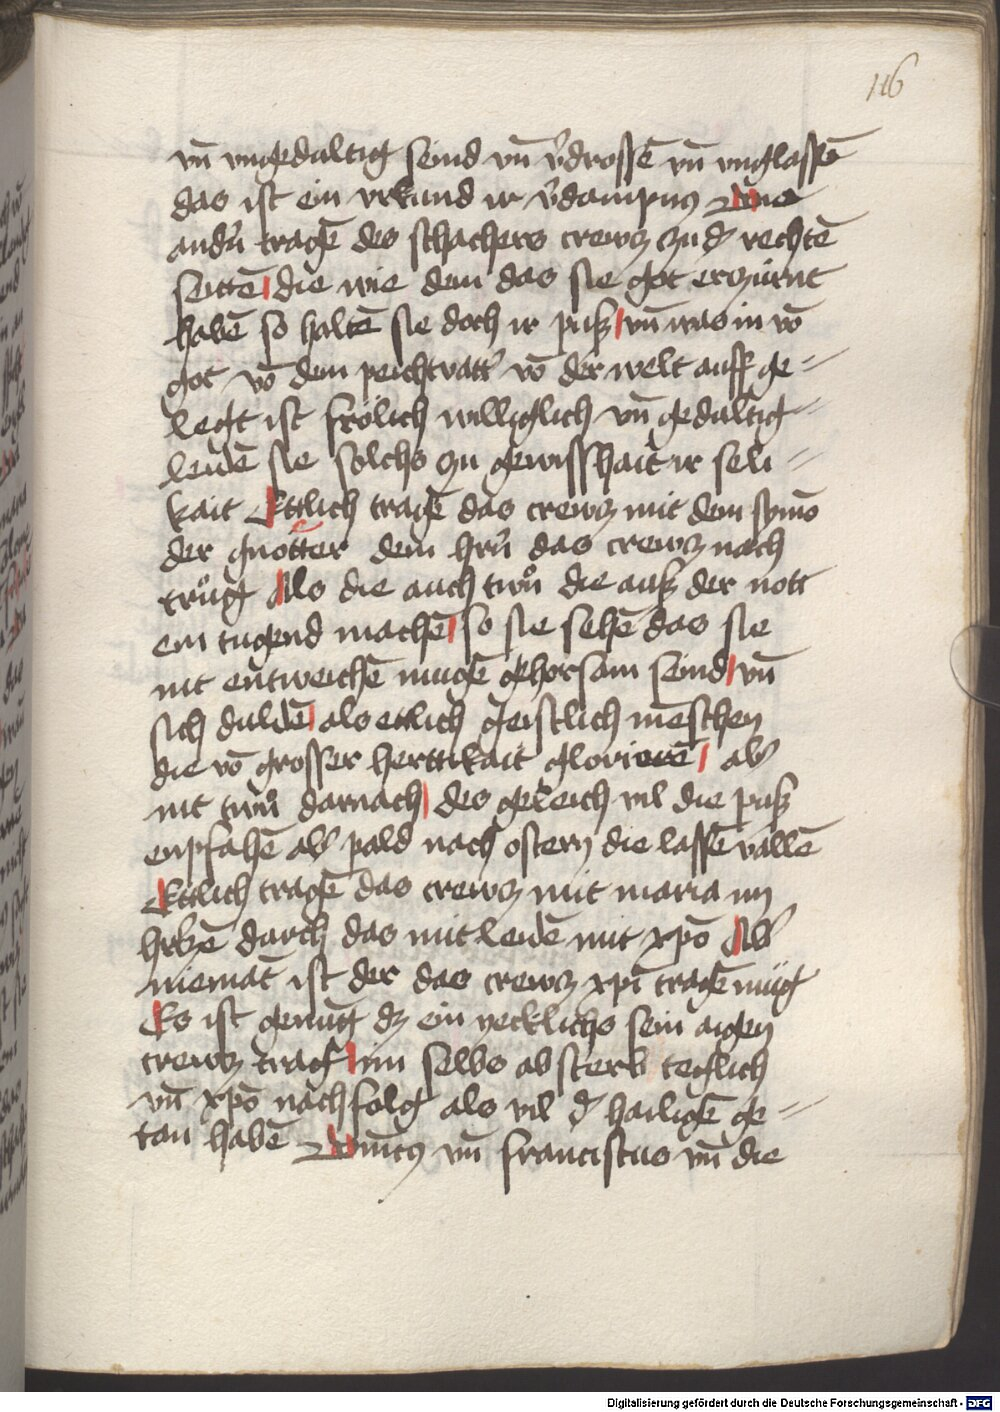 116
vn̄ vngedultig seind vn̄ v̄drossē vn̄ vnglassē
das ist ein vrkund ir v̄dampnus
andn̄ tragē des schachers crewcz zu d' rechtē
seittē die wie dem das sie got erzürnt
habē so haltē sie doch ir pusz vn̄ was in vō
got vō dem peichtvatt' vō der welt auff ge=
legt ist frölich williglich vn̄ gedultig=
leidē sie solchs zu gewisshait ir seli=
kait Ettlich tragē das crewcz mit dem symō
der dem hrn̄ das crewcz nach
trůg Als die auch tun die ausz der nott
ein tugend machē so sie sehē das sie
nit entweichē mugē gehorsam seind vn̄
sich duldē als ettlich geistlich mēschen
die vō grosser herttikait glorierē ab'
nit tun darnach des geleich vil die pusz
enpfahē ab' pald nach ostern die lassē vallē
Ettlich tragē das crewcz mit maria im
hrczē durch das mitleidē mit xp̄o Ab'
niemāt ist der das crewcz xp̄i tragē müg
Es ist genüg dz ein yeklichs sein aigen
crewcz trag im selbs absterb teglich
vn̄ xp̄o nachfolg als vil d' hailigē ge=
tan habē vn̄ franciscus vn̄ die
Digitalisierung gefördert durch die Deutsche Forschungsgemeinschaft - DFG